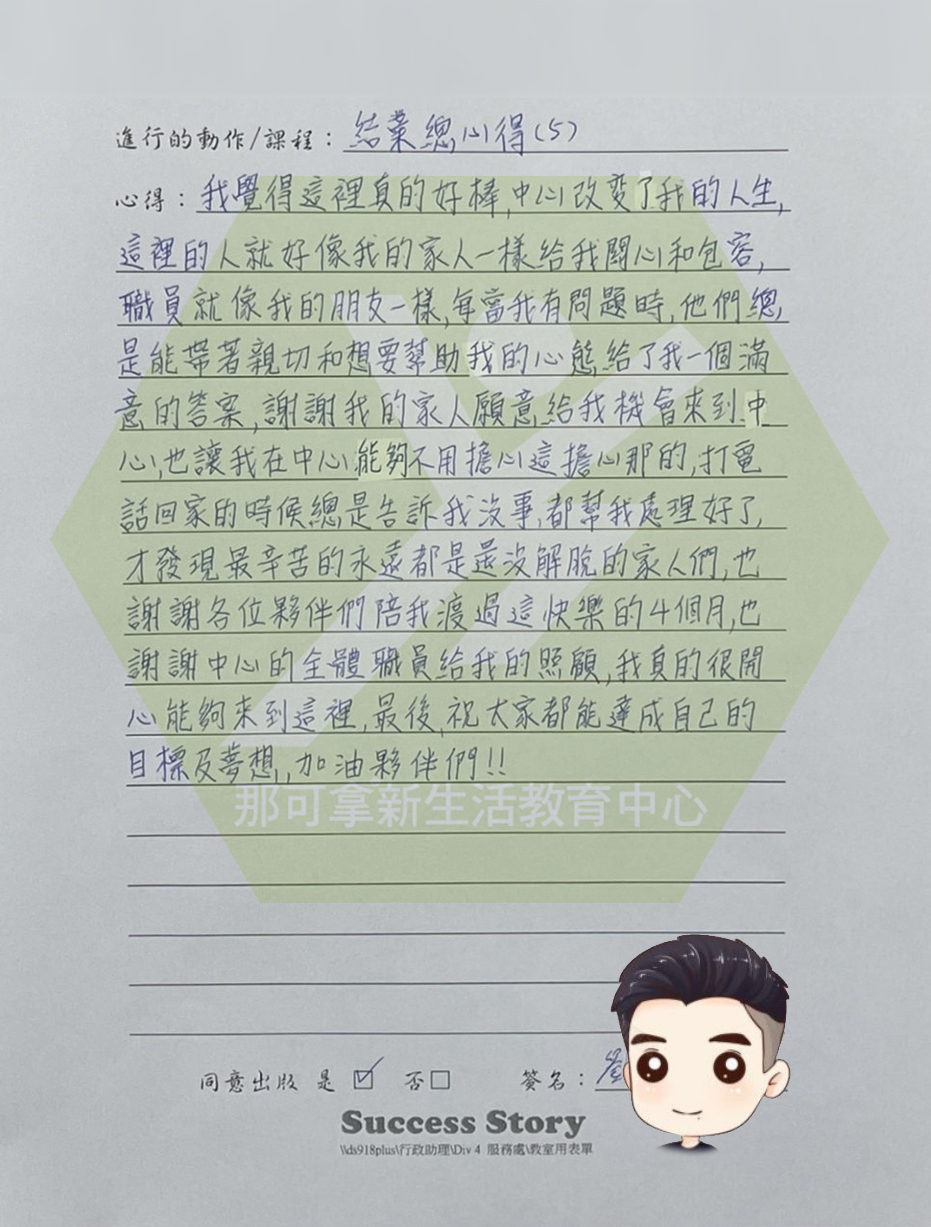 進行的動作/課程：結業總心得(5)
心得：我覺得這裡真的好棒,中心改变了我的人生,
這裡的人就好像我的家人一樣給我關心和包容,
職員就像我的朋友一樣,每當我有問題時,他們總
是能帶著親切和想要幫助我的心態給了我一個滿
意的答案,謝謝我的家人願意給我機會來到中
心,也讓我在中心能夠不用擔心這擔心那的,打電
話回家的時候總是告訴我沒事,都幫我處理好了,
才發現最辛苦的永遠都是還沒解脫的家人們,也
謝謝各位夥伴們陪我渡過這快樂的4個月,也
謝謝中心的全體職員給我的照顧,我真的很開
心能夠來到這裡,最後,祝大家都能達成自己的
目標及夢想,,加油夥伴們!!
那可拿新生活教育中心
同意出版 是☑ 否□ 簽名：
Success Story
\\ds918plus\行政助理\Div 4 服務處\教室用表單